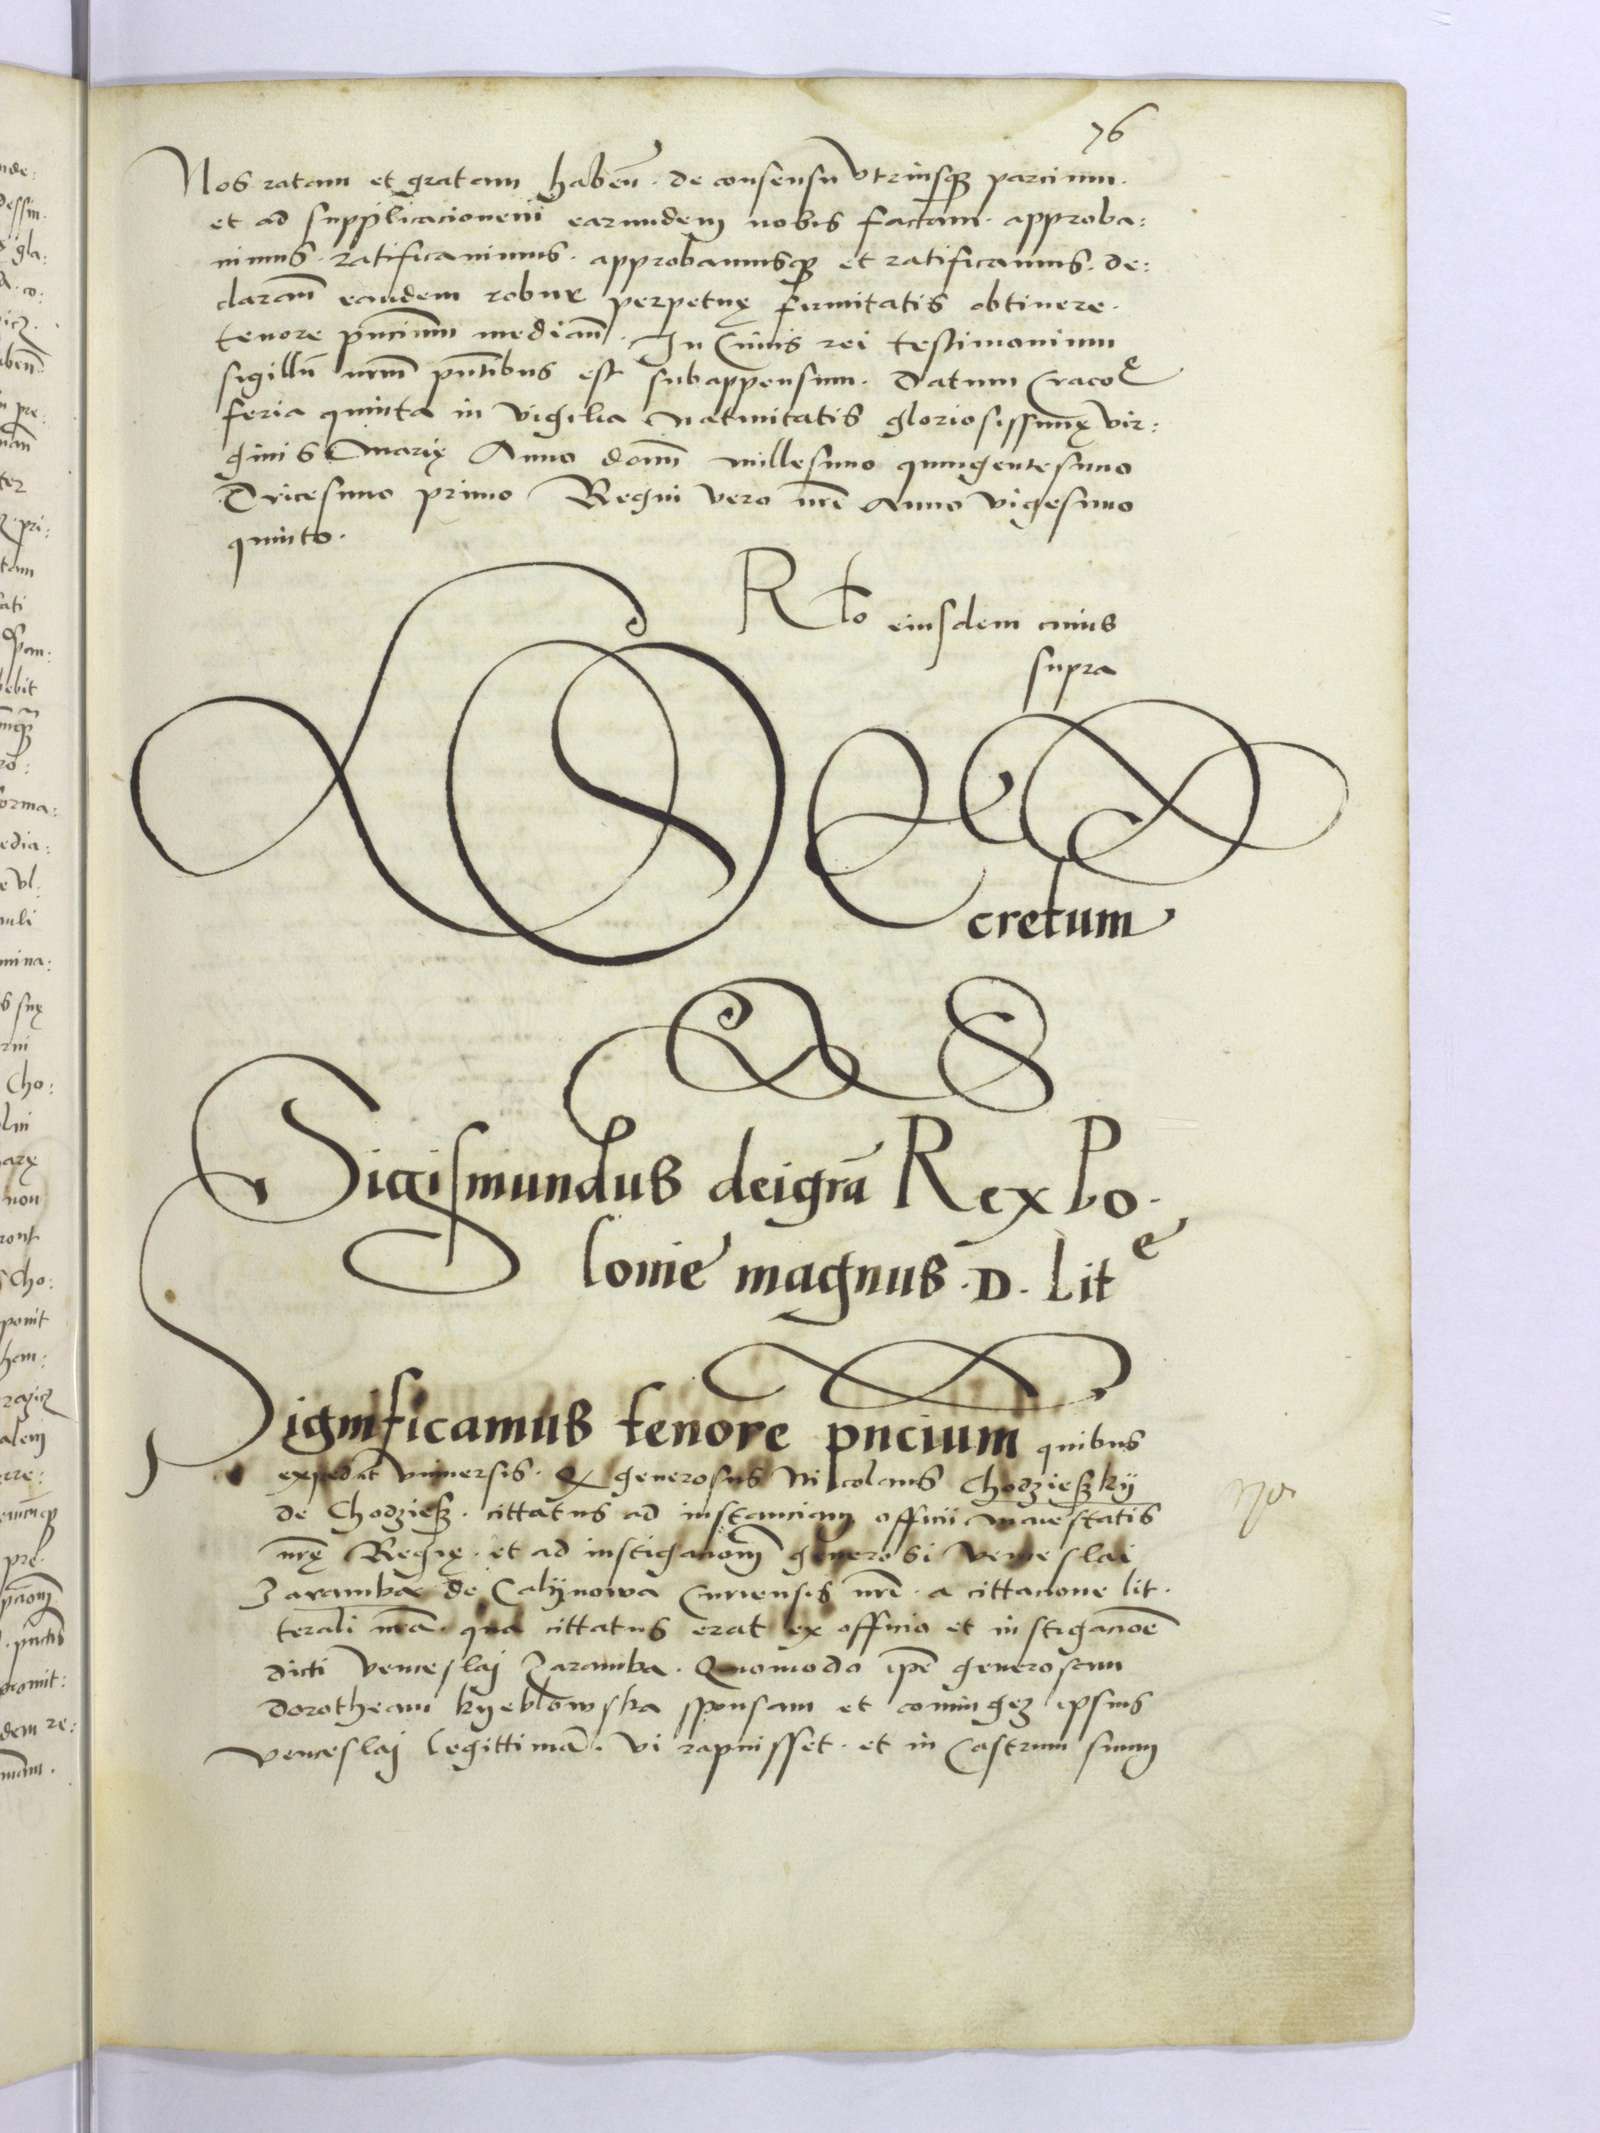 76
Nos ratam et gratam habeñ. de consensu vtriusqꝫ parcium.
et ad supplicacionem earundem nobis factam. approba:
uimus. ratificauimus. approbamusqꝫ et ratificamus. de:
claram̃ eandem robur perpetuę firmitatis obtinere.
tenore pñcium median̄. In Cuius rei testimonium
sigillũ nr̃m pñtibus est subappensum. Datum Cracoę
feria quinta in vigilia Natiuitatis gloriosissimę vir:
ginis Marię Anno domĩ millesimo quingentesimo
Tricesimo primo Regni vero nr̃i Anno vigesimo
quinto.
Rto eiusdem cuius
supra
Decretum
Sigismundus dei gra͂ Rex Po.
lonie magnus . D . Lite
Significamus tenore pñcium quibus
expedit vniuersis. Qꝫ generosus Nicolaus Chodzieszky
de Chodziesz. cittatus ad instanciam officii Maiestatis
nr̃ę Regię. et ad instigacionem̃ generosi Venceslai
Zarambae de Calÿnowa Curiensis nr̃i. a cittacione lit.
terali nr̃a. qua cittatus erat ex officio et instigacioẽ
dicti Venceslaj Zaramba. Quomodo ip̃e generosam
Dorotheam kyeblowska sponsam et coniugeꝫ ipsius
Venceslaj legittimã. vi rapuisset. et in Castrum suum